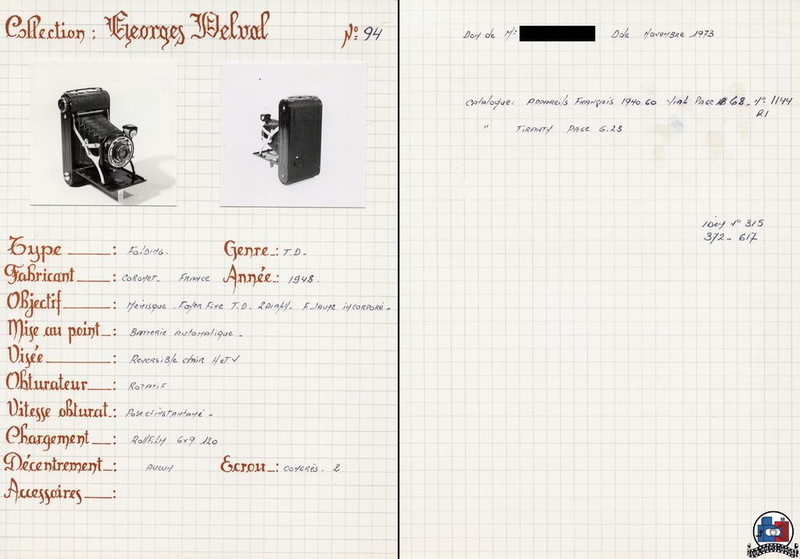 Collection : Georges Delval N° 94
Type : Folding.
Genre : T.D.
Fabricant : Coronet. France
Année : 1948.
Objectif : Ménisque. Foyer Fixe T.D. 2 Diaph. F. Jaune incorporé.
Mise au point : Batterie automatique.
Visée : Reversible clair H et V
Obturateur : Rotatif
Vitesse obturat. : Pose et instantané.
Chargement : Rollfilm 6x9 120
Décentrement : aucun
Ecrou : Congrès. 2
Accessoires :
Don de Mr: Date Novembre 1973
Catalogue: Appareils Français 1940.60 Vial Page 68. N° 1144
R1
" Tiranty Page 6.28
idem N° 315
372 - 617